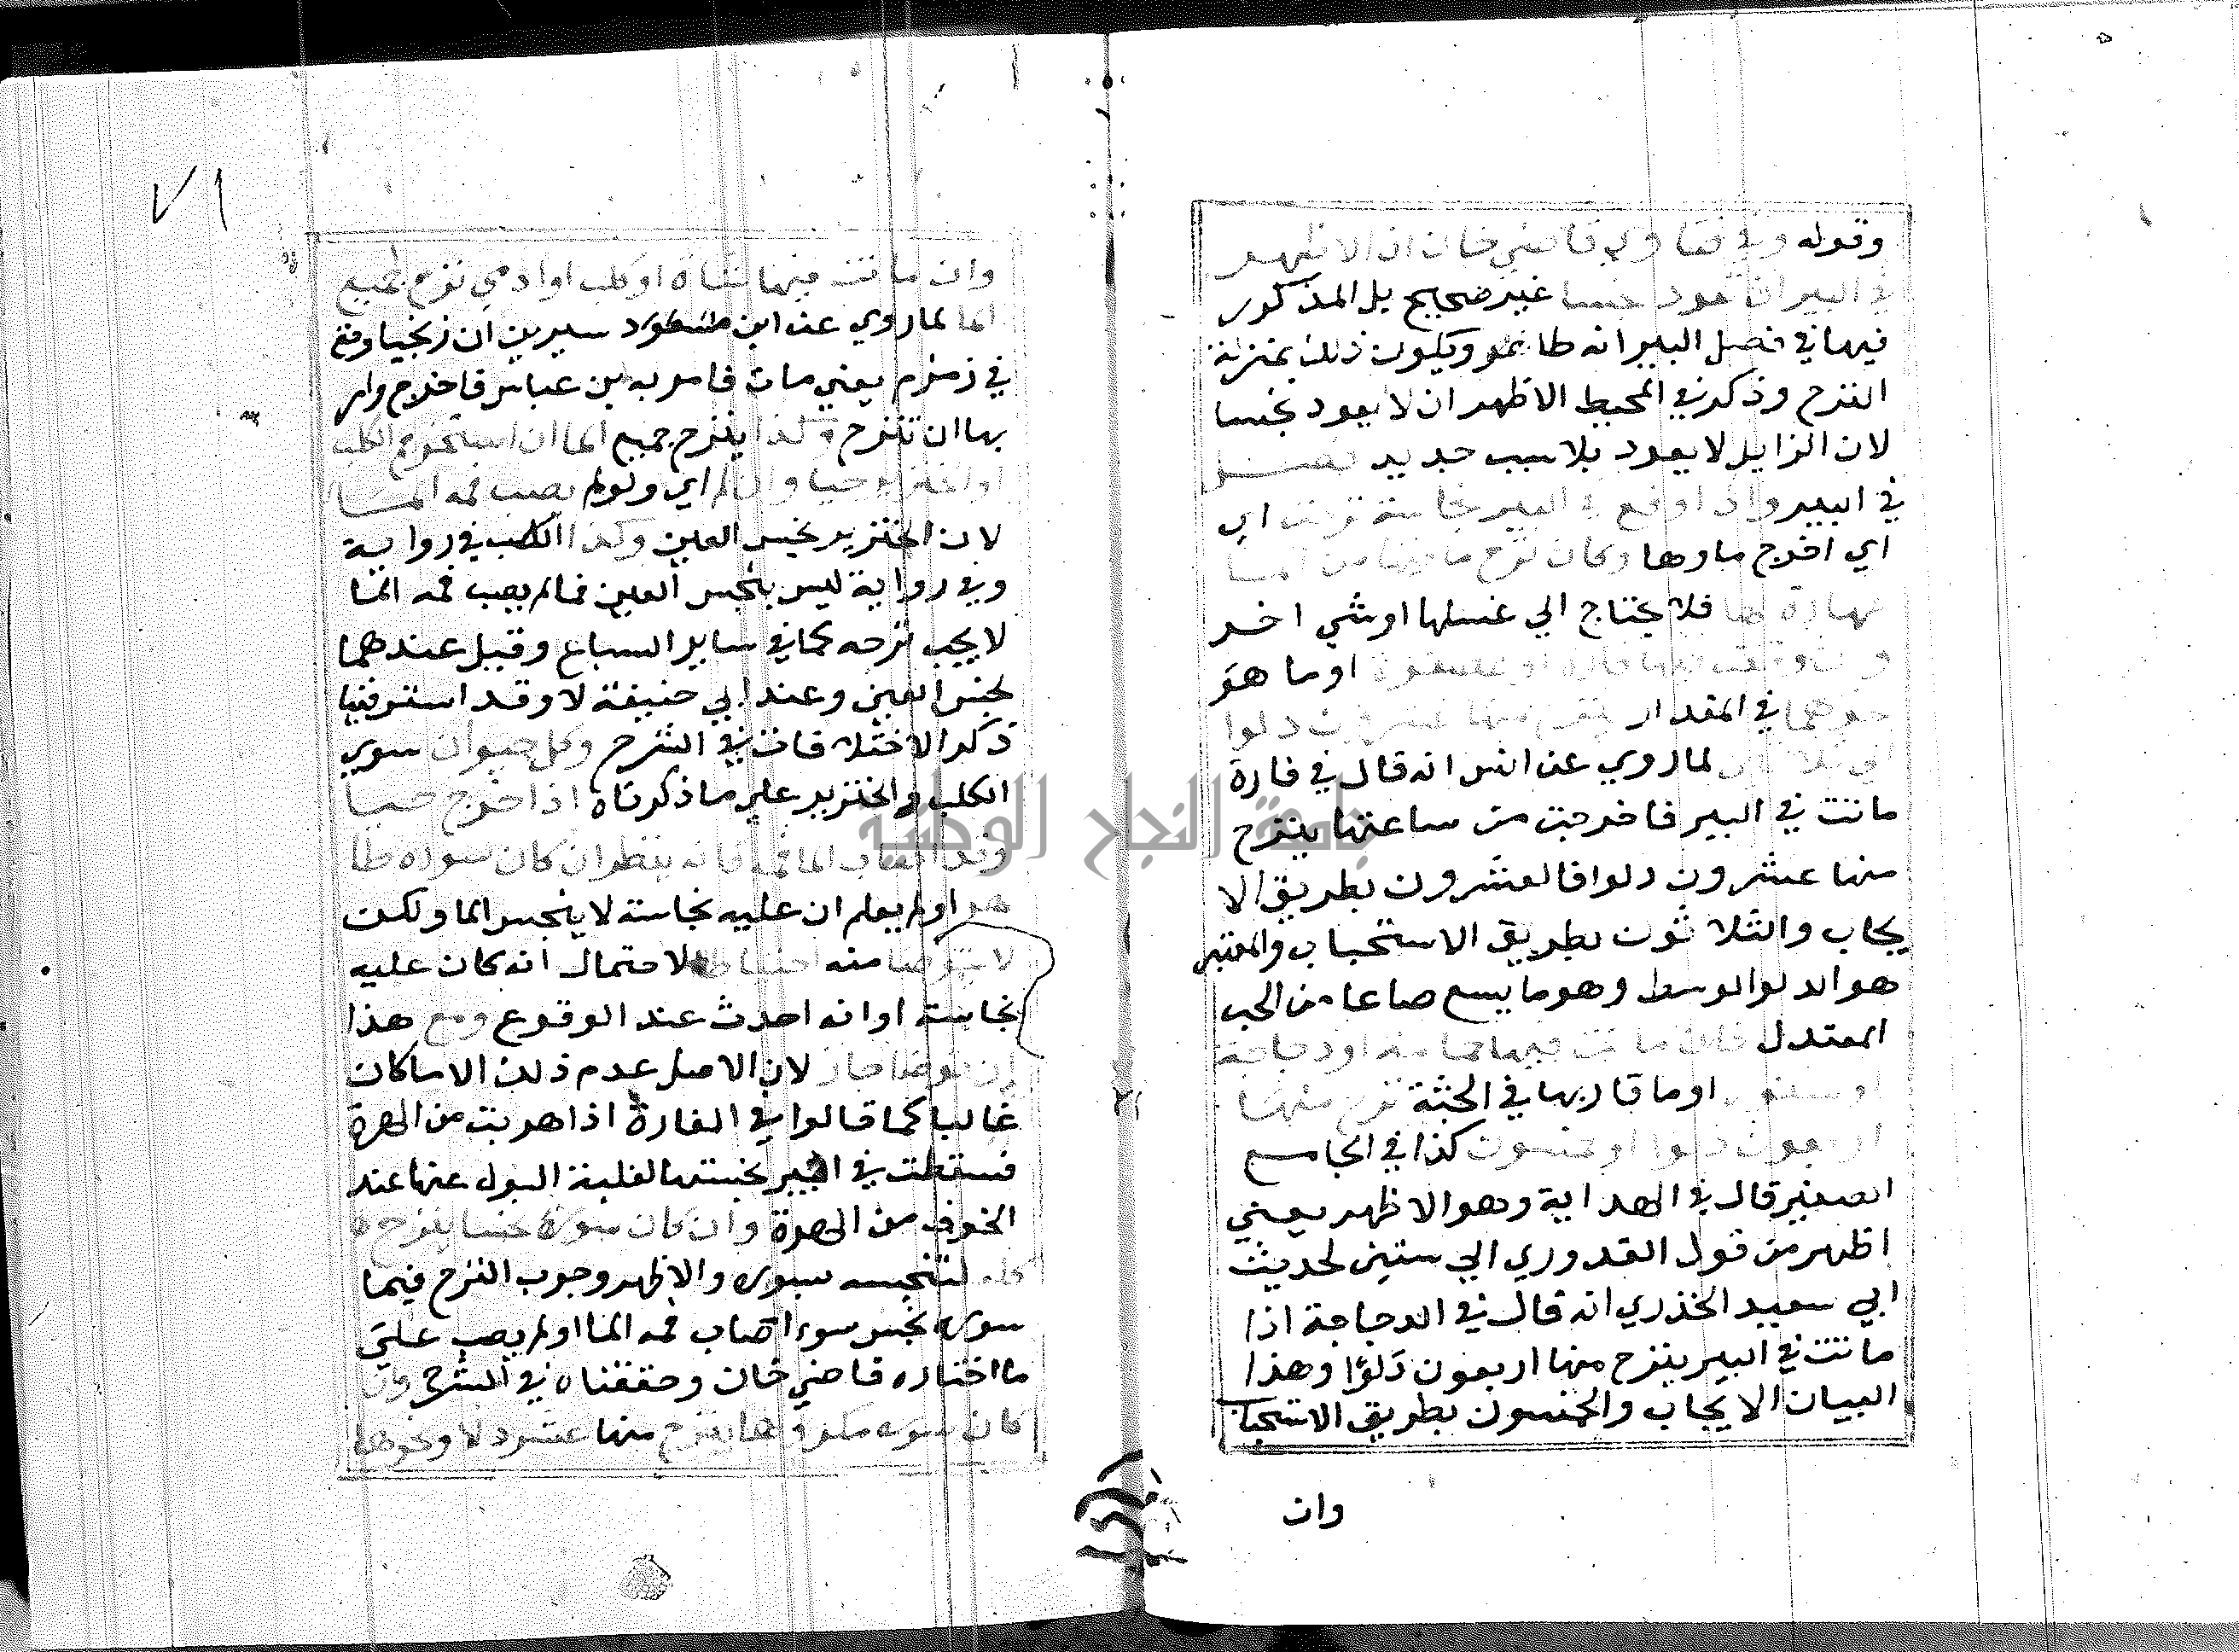 وقوله وفي فتاوي قاضي خان ان الاظهر
في البير ان يعود نجسا غير صحيح بل المذكور
فيها في فصل البير انه طاهر ويكون ذلك بمنزلة
النزح وذكر في المحيط الاظهر ان لا يعود نجسا
لان الزايل لا يعود بلا سبب جديد فصل
في البير واذا وقع في البير نجاسة نزحت اي
اي اخرج ماوها وكان نزح ما فيها من المـا
طهارة لها فلا يحتاج الي غسلها او شي اخر
وان وقعت فيها فارة او عصفورة او ما هو
نحوهما في المقدار ينزح منها عشرون دلوا
الي ثلاثين لما روي عن انس انه قال في فارة
ماتت في البير فاخرجت من ساعتها ينزح
منها عشرون دلوا فالعشرون بطريق الا
يجاب والثلاثون بطريق الاستحباب والمعتبر
هو الدلو الوسط وهو ما يسع صاعا من الحب
المعتدل فان ماتت فيها حمامة او دجاجة
او سنور او ما قاربها في الجثة نزح منها
اربعون دلوا او خمسون كذا في الجامع
الصغير قال في الهداية وهو الاظهر يعني
اظهر من قول القدوري الي ستين لحديث
ابي سعيد الخذري انه قال في الدجاجة اذا
ماتت في البير ينزح منها اربعون دلوًا وهذا
البيان الايجاب والخمسون بطريق الاستحبا
وان
٧١
وان ماتت فيها شاة او كلب او ادمي نزح جميع
الما لما روي عن ابن سيرين ان زنجيا وقع
في زمزم يعني مات فامر به بن عباس فاخرج وامر
بها ان تنزح وكذا ينزح جميع الما ان استخرج الكلب
او الخنزير حيا وان لم اي ولو لم يصب فمه المـا
لان الخنزير نجس العين وكذا الكلب في رواية
وفي رواية ليس بنجس العين فما لم يصب فمه المـا
لا يجب نزحه كما في ساير السباع وقيل عندهما
نجس العين وعند ابي حنيفة لا وقد استوفينا
ذكر الاختلافات في الشرح وكل حيوان سوي
الكلب والخنزير علي ما ذكرناه اذا خرج حيـا
وقد اصاب الما فمه فانه ينظر ان كان سوره طا
هرا ولم يعلم ان عليه نجاسة لا ينجس الما ولكن
لا يتوضا منه احتياطا لاحتمال انه كان عليه
نجاسة او انه احدث عند الوقوع ومع هذا
ان توضا جاز لان الاصل عدم ذلك الا ما كان
غالبا كما قالوا في الفارة اذا هربت من الهرة
فسقطت في البير نجستها لغلبة البول عنها عند
الخوف من الهرة وان كان سوره نجسا ينزح
كله لتنجسه بسوره والاظهر وجوب النزح فيما
سوره نجس سوء اصاب فمه الما او لم يصب علي
ما اختاره قاضي خان وحققناه في الشرح وان
كان سوره مكروها ينزح منها عشر دلا ونحوها
جامعة النجاح الوطنية